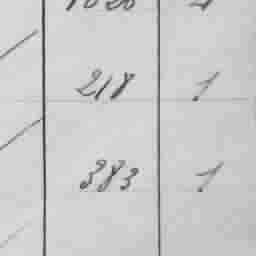 218 1
383 1